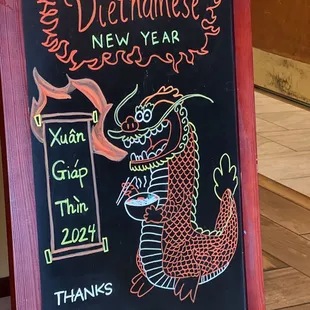 Vietnamese
NEW YEAR
Xuân
Giáp
Thìn
2024
THANKS